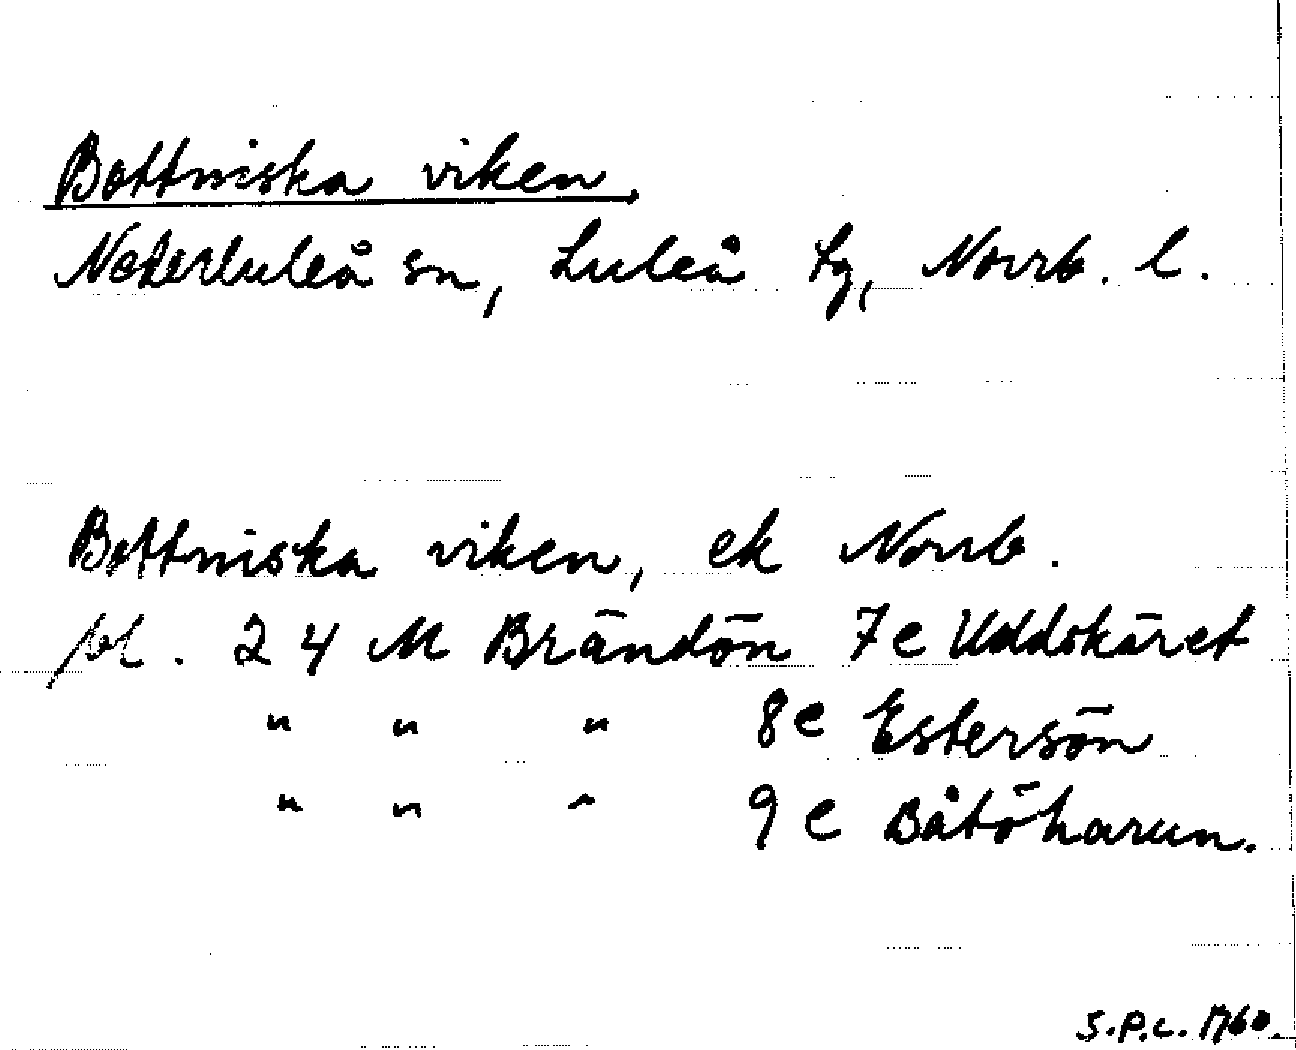 Bottniska viken,
Nederluleå sn, Luleå tg, Norrb. l.
Bottniska viken, ek Norrb.
bl. 24 M Brändön 7e Uddskäret
" " " 8e Estersön
" " " 9e Båtöharun.
S.P.C. 1960.